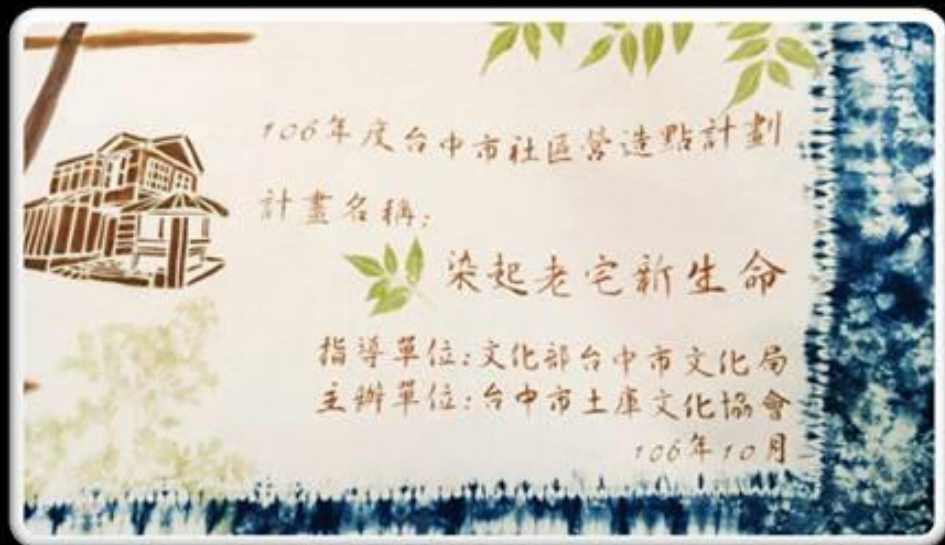 106年度台中市社區營造點計劃
計畫名稱:
染起老宅新生命
指導單位:文化部台中市文化局
主辦單位:台中市土庫文化協會
106年10月